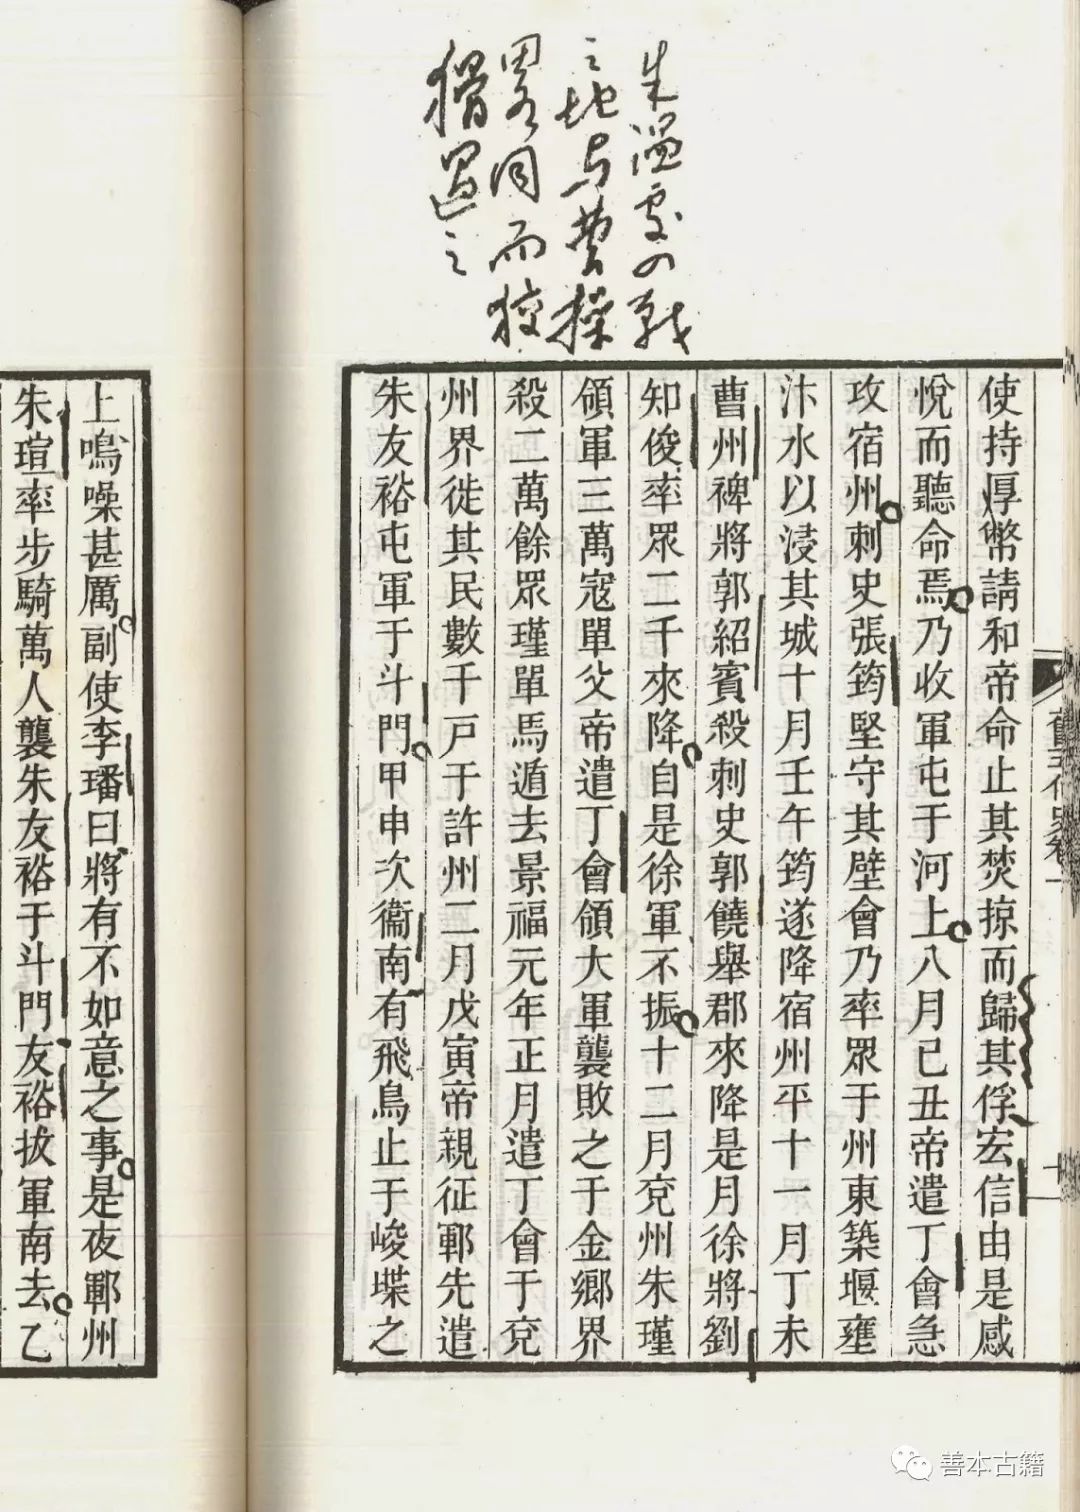 朱温處四戰
之地与曹操
畧同而狡
猾過之
使持厚幣請和帝命止其焚掠而歸其俘宏信由是感
悅而聽命焉乃收軍屯于河上八月己丑帝遣丁會急
攻宿州刺史張筠堅守其壁會乃率眾于州東築堰壅
汴水以浸其城十月壬午筠遂降宿州平十一月丁未
曹州裨將郭紹賓殺刺史郭饒舉郡來降是月徐將劉
知俊率眾二千來降自是徐軍不振十二月兗州朱瑾
領軍三萬寇單父帝遣丁會領大軍襲敗之于金鄉界
殺二萬餘眾瑾單馬遁去景福元年正月遣丁會于兗
州界徙其民數千戶于許州二月戊寅帝親征鄆先遣
朱友裕屯軍于斗門甲申次衞南有飛鳥止于峻堞之
上鳴噪甚厲副使李璠曰將有不如意之事是夜鄆州
朱瑄率步騎萬人襲朱友裕于斗門友裕拔軍南去乙
舊五代史卷一
十一
善本古籍